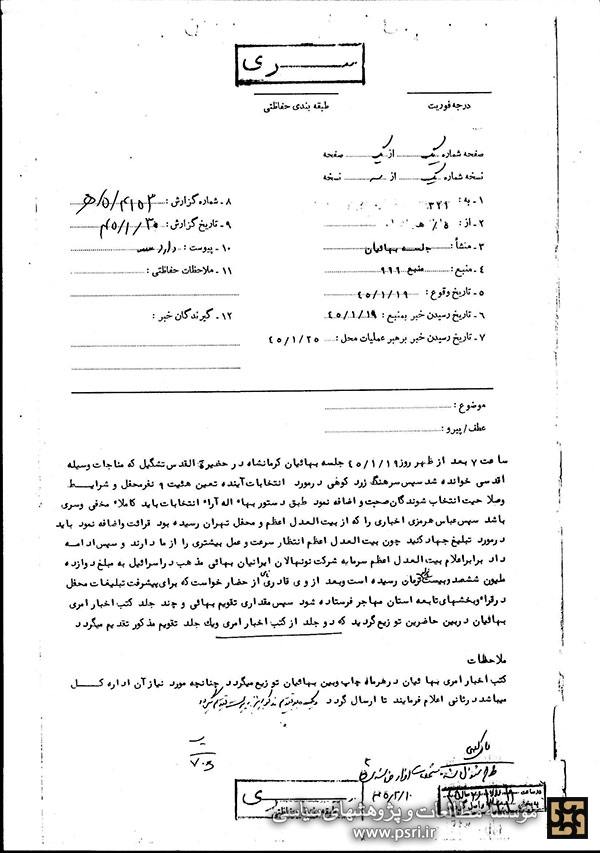 ســـری
درجه فوریت
طبقه بندی حفاظتی
صفحه شماره یک از یک صفحه
نسخه شماره یک از سه نسخه
۱ـ به : ۳۴۱
۲ـ از :
۳ـ منشأ : جلسه بهائیان
۴ـ منبع : منبع ۹۹۹
۵ـ تاریخ وقوع : ۴۵/۱/۱۹
۶ـ تاریخ رسیدن خبر بمنبع : ۴۵/۱/۱۹
۷ـ تاریخ رسیدن خبر برهبر عملیات محل : ۴۵/۱/۲۵
۸ـ شماره گزارش : ۵/۴۱۵۳/ھ
۹ـ تاریخ گزارش : ۴۵/۱/۳۰
۱۰ـ پیوست : دارد
۱۱ـ ملاحظات حفاظتی :
۱۲ـ گیرندگان خبر :
موضوع :
عطف/پیرو :
ساعت ۷ بعد از ظهر روز ۴۵/۱/۱۹ جلسه بهائیان کرمانشاه در حضیرح القدس تشکیل که مناجات وسیله
اقدسی خوانده شد سپس سرهنگ زرد کوهی درمورد انتخابات آینده تعین هئیت ۹ نفر محفل و شرایط
وصلاحیت انتخاب شوندگان صحبت و اضافه نمود طبق دستور بهاء اله آراء انتخابات باید کاملاء مخفی وسری
باشد سپس عباس هرمزی اخباری را که از بیت العدل اعظم و محفل تهران رسیده بود قرائت واضافه نمود باید
درمورد تبلیغ جهاد کنید چون بیت العدل اعظم انتظار سرعت و عمل بیشتری را از ما دارند و سپس ادامه
داد برابر اعلام بیت العدل اعظم سرمایه شرکت نونهالان ایرانیان بهائی مذهب در اسرائیل به مبلغ دوازده
ملیون ششصد و بیست تومان رسیده است وبعد از وی قادری از حضار خواست که برای پیشرفت تبلیغات محفل
در قراء وبخشهای تابعه استان مهاجر فرستاده شود سپس مقداری تقویم بهائی و چند جلد کتب اخبار امری
بهائیان در بین حاضرین توزیع گردید که دو جلد از کتب اخبار امری ویك جلد تقویم مذکور تقدیم میگردد
ملاحظات
کتب اخبار امری بهائیان در هر ماه چاپ وبین بهائیان توزیع میگردد چنانچه مورد نیاز آن اداره کـــل
میباشد در ثانی اعلام فرمایند تا ارسال گردد
۴۵/۲/۱۰
۷۰۵
ســـری
طبقه بندی حفاظتی
موسسه مطالعات و پژوهشهای سیاسی
www.psri.ir